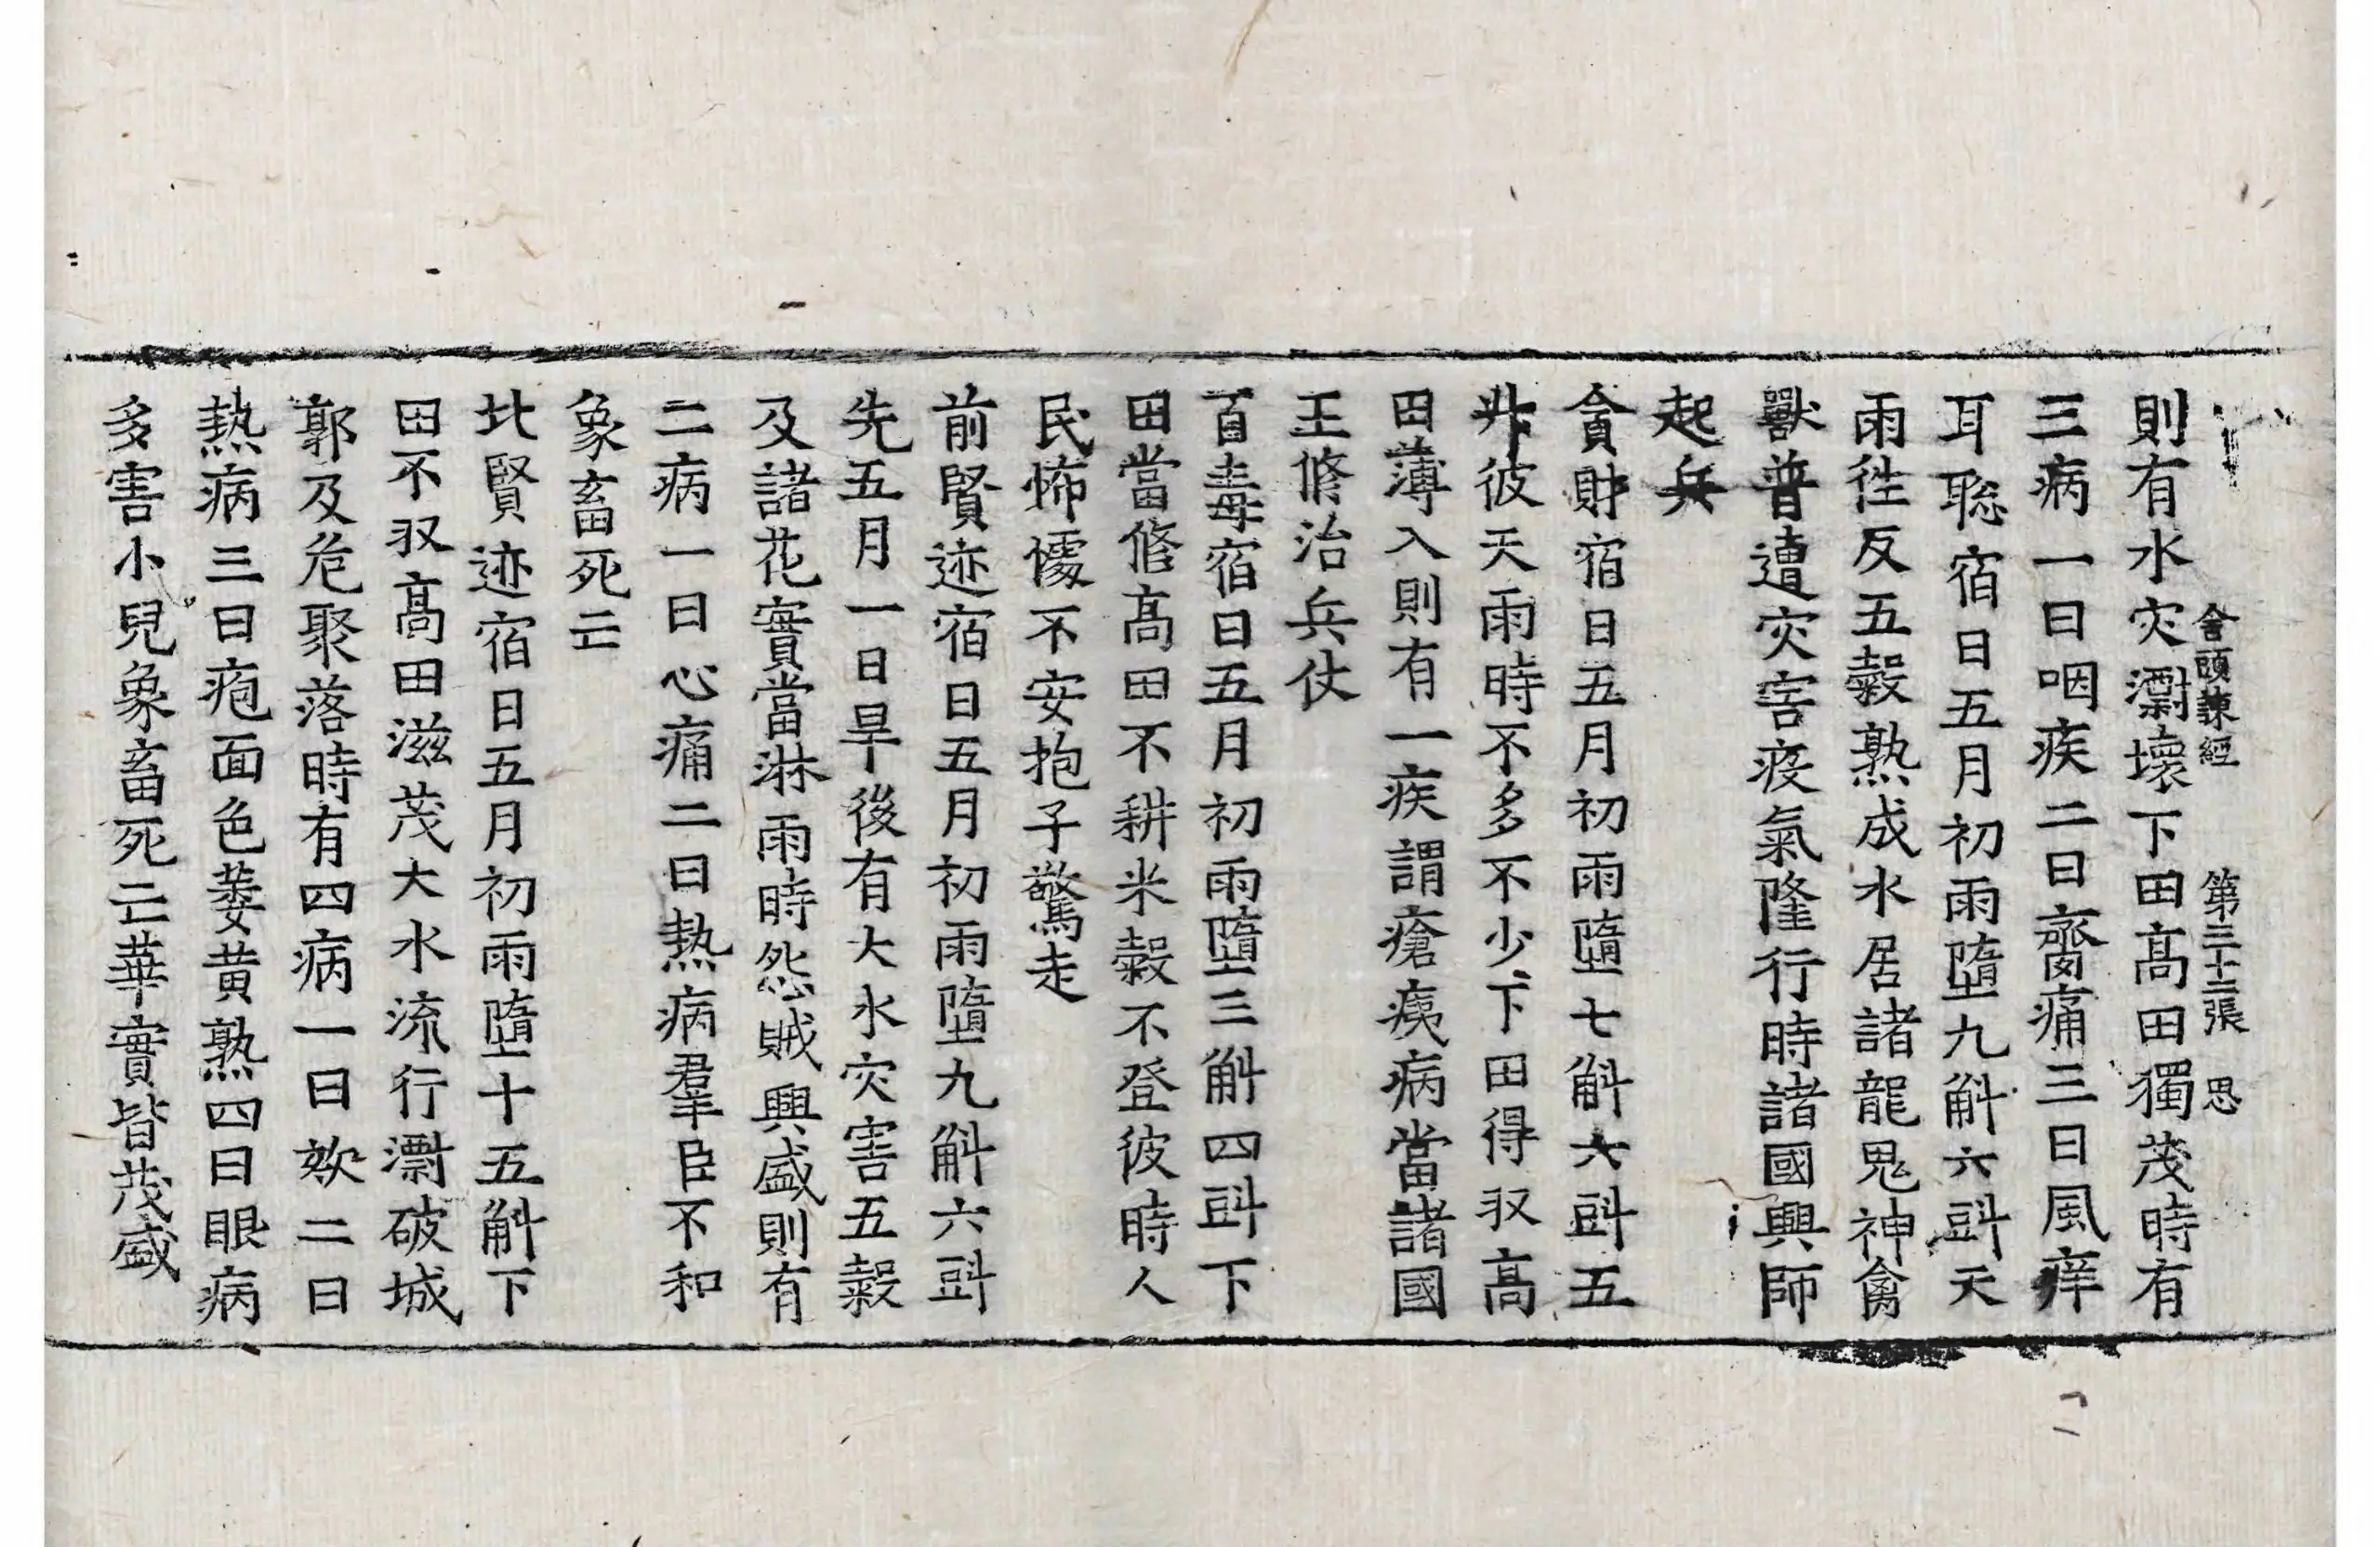 舍頭諫經 第三十二張 思
則有水灾㶑壞下田髙田獨茂時有
三病一曰咽疾二曰齋痛三曰風痒
耳聦宿日五月初雨墮九斛六㪷天
雨徃反五榖熟成水居諸龍鬼神禽
獸普遭灾害疫氣隆行時諸國興師
起兵
貪財宿日五月初雨墮七斛六㪷五
穀彼天雨時不多不少下田得収髙
田薄入則有一疾謂瘡痍病當諸國
王脩治兵仗
百毒宿日五月初雨墮三斛四㪷下
田當脩髙田不耕米榖不登彼時人
民怖懅不安抱子驚走
前賢迹宿日五月初雨墮九斛六㪷
先五月一日旱後有大水灾害五穀
及諸花實當淋雨時怨賊興盛則有
二病一曰心痛二曰熱病羣臣不和
象畜死亡
北賢迹宿日五月初雨墮十五斛下
田不収髙田滋茂大水流行㶑破城
郭及危聚落時有四病一曰欬二曰
熱病三曰疱面色萎黄熟四曰眼病
多害小兒象畜死亡華實皆茂盛